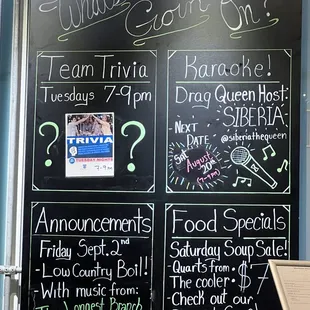 What's Goin' On?
Team Trivia
Tuesdays 7-9pm
? ?
TRIVIA
TUESDAY NIGHTS
7-9
Karaoke!
Drag Queen Host
SIBERIA
@siberiathequeen
Next
Date
Sat.
August
20th
(7-9pm)
Announcements
Friday Sept. 2nd
- Low Country Boil!!
- With music from:
The Longest Branch
Food Specials
Saturday Soup Sale!
- Quarts from
The cooler - $7
- Check out our